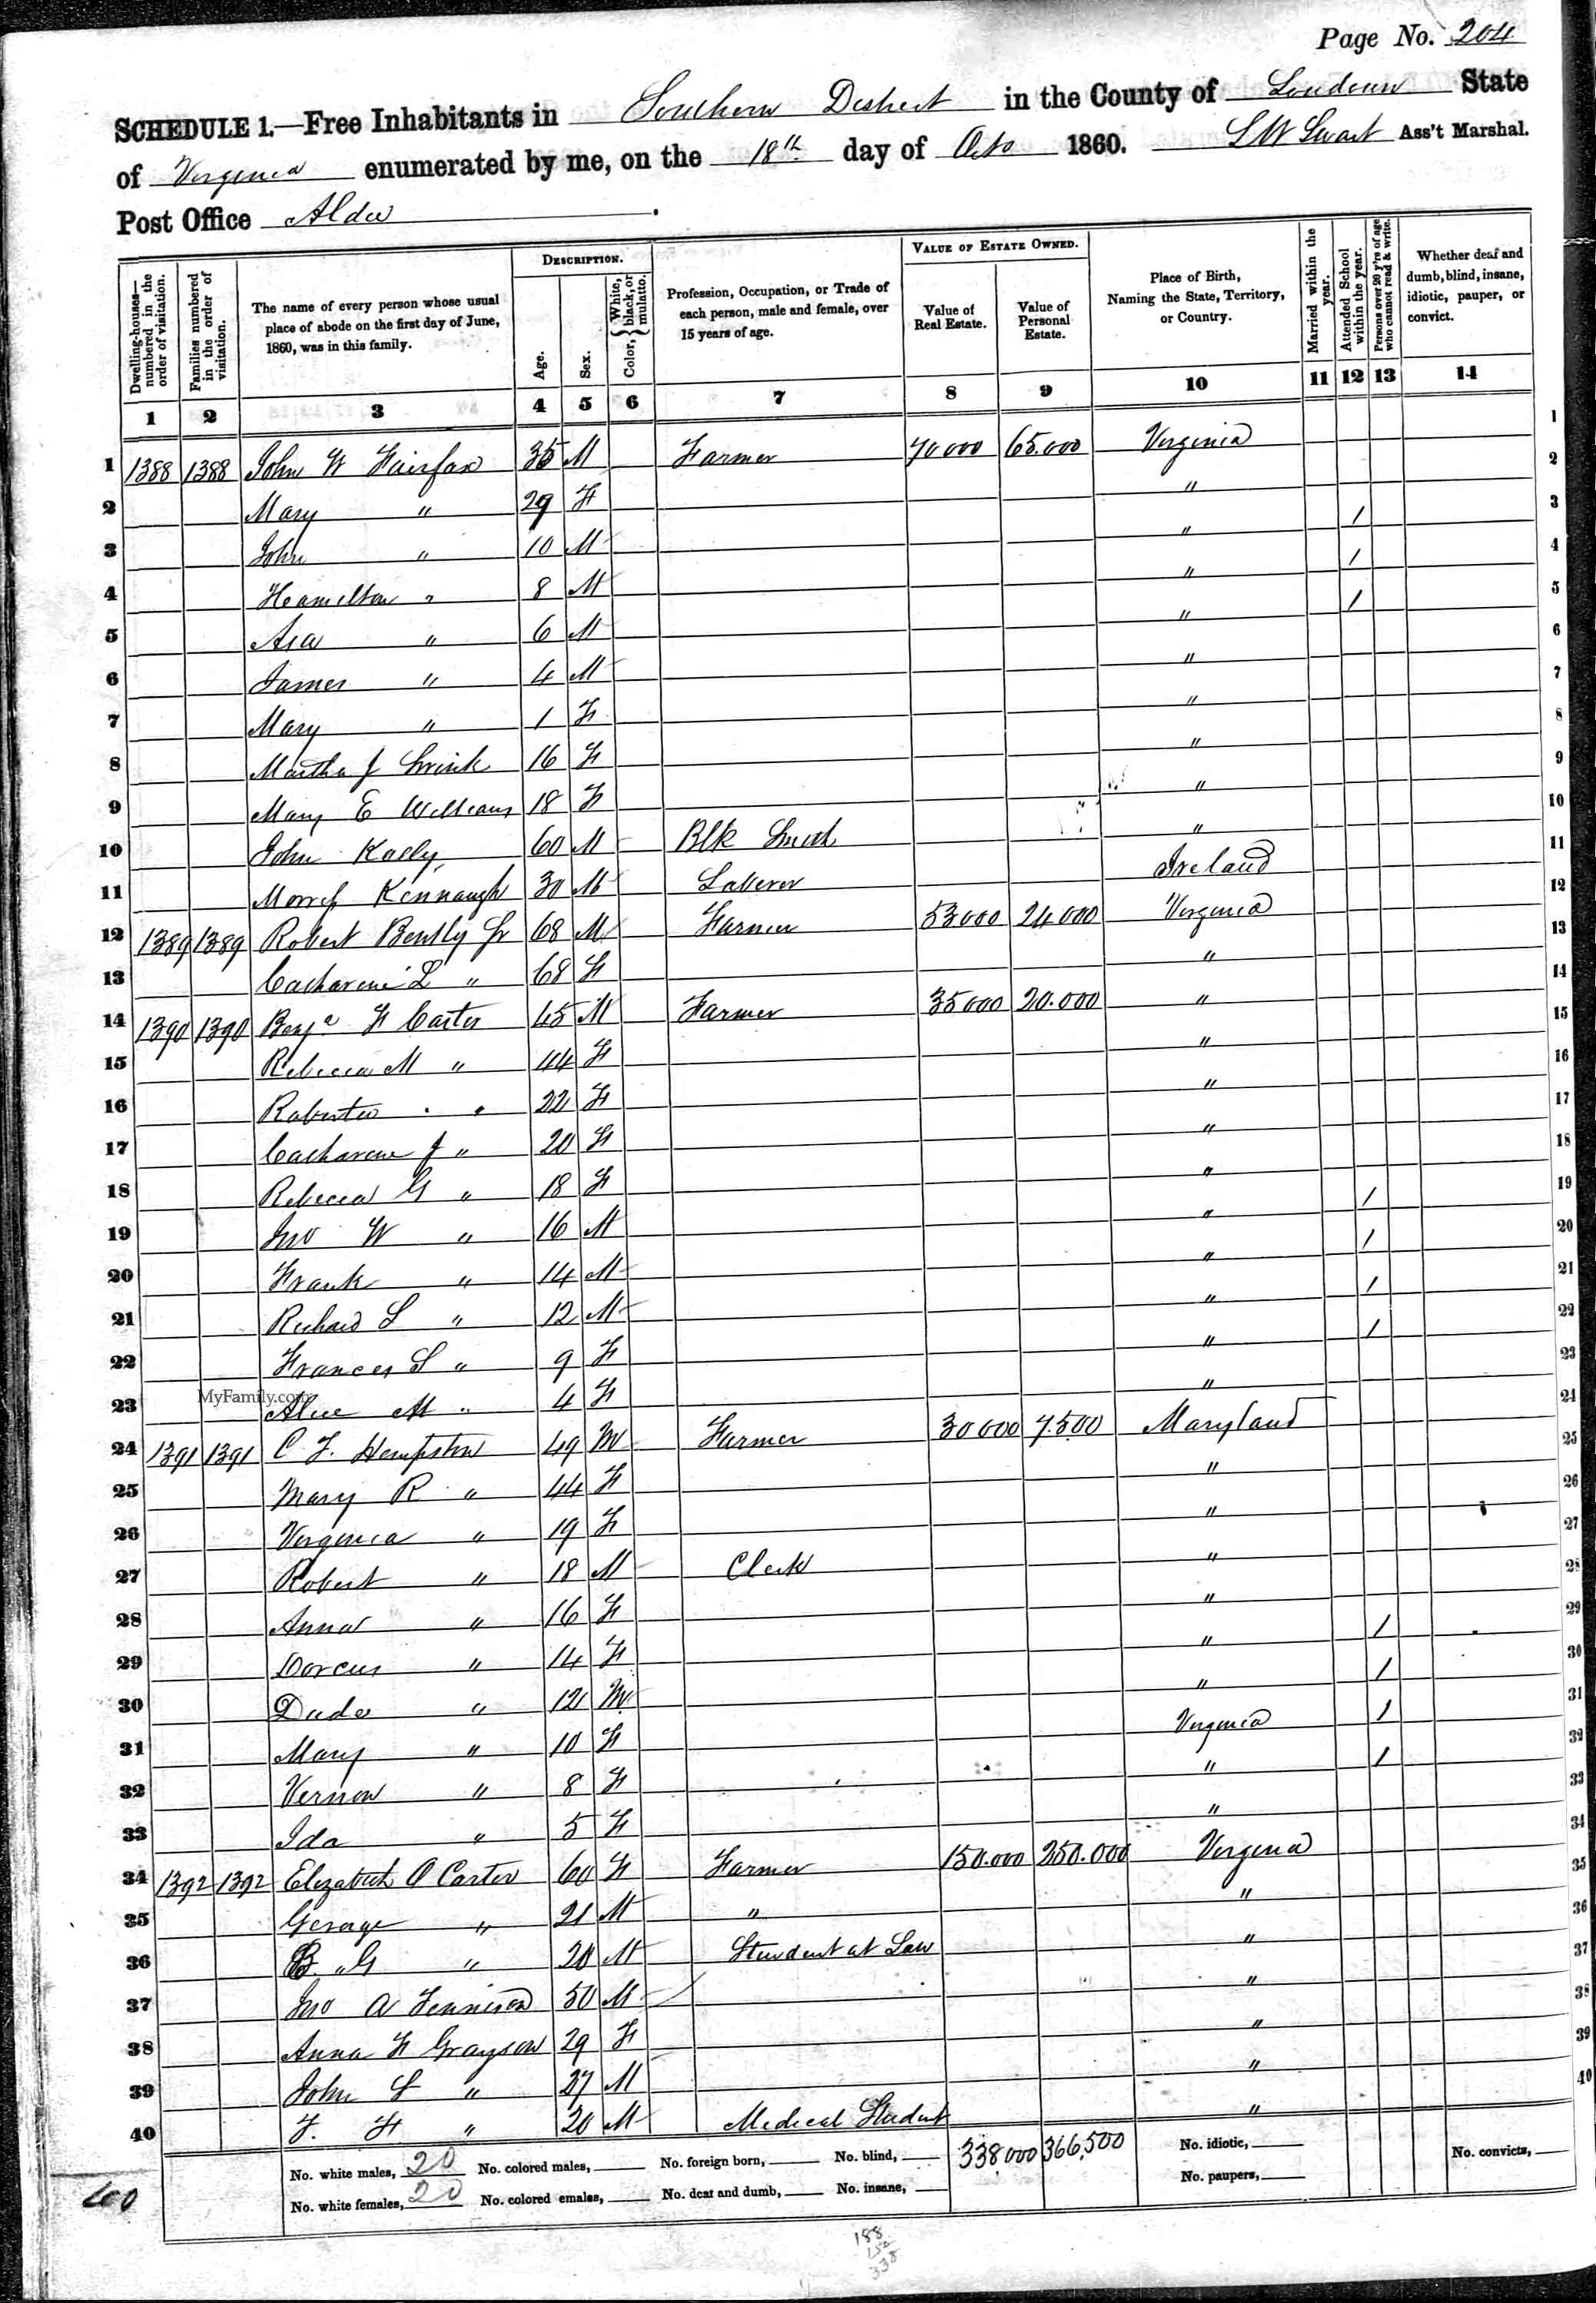 Page No. 204
SCHEDULE 1.—Free Inhabitants in Southern District in the County of Loudoun State
of Virginia enumerated by me, on the 18th day of Octo 1860. Ass't Marshal.
Post Office Aldie
Dwelling-houses— numbered in the order of visitation.
Families numbered in the order of visitation.
The name of every person whose usual place of abode on the first day of June, 1860, was in this family.
DESCRIPTION.
Age.
Sex.
Color, { White, black, or mulatto.
Profession, Occupation, or Trade of each person, male and female, over 15 years of age.
VALUE OF ESTATE OWNED.
Value of Real Estate.
Value of Personal Estate.
Place of Birth, Naming the State, Territory, or Country.
Married within the year.
Attended School within the year.
Persons over 20 y'rs of age who cannot read & write.
Whether deaf and dumb, blind, insane, idiotic, pauper, or convict.
1 2 3 4 5 6 7 8 9 10 11 12 13 14
1 1388 1388 John W Fairfax 35 M Farmer 70000 65.000 Virginia 1
2 Mary " 29 F " 2
3 John " 10 M " / 3
4 Hamilton " 8 M " / 4
5 Asa " 6 M " / 5
6 James " 4 M " 6
7 Mary " 1 F " 7
8 Martha J 16 F " 8
9 Mary E Williams 18 F " 9
10 John Kelly 60 M Blk Smith " 10
11 30 M Laborer Ireland 11
12 1389 1389 Robert Bently Sr 68 M Farmer 53000 24000 Virginia 12
13 Catharine L " 68 F " 13
14 1390 1390 Benja F Carter 45 M Farmer 35000 20.000 " 14
15 Rebecca M " 44 F " 15
16 Roberta " " 22 F " 16
17 Catharine J " 20 F " 17
18 Rebecca G " 18 F " 18
19 Jno W " 16 M " / 19
20 Frank " 14 M " / 20
21 Richard L " 12 M " / 21
22 Frances S " 9 F " / 22
MyFamily.com
23 Alice M " 4 F " 23
24 1391 1391 C F Hempston 49 M Farmer 30000 7.500 Maryland 24
25 Mary R " 44 F " 25
26 Virginia " 19 F " 26
27 Robert " 18 M Clerk " 27
28 Anna " 16 F " 28
29 Dorcus " 14 F " / 29
30 " 12 M " / 30
31 Mary " 10 F Virginia / 31
32 Vernon " 8 F " / 32
33 Ida " 5 F " 33
34 1392 1392 Elizabeth O Carter 60 F Farmer 150.000 250.000 Virginia 34
35 George " 21 M " " 35
36 B. G " 20 M Student at Law " 36
37 Jno A Tennison 50 M " 37
38 Anna F Grayson 29 F " 38
39 John S " 27 M " 39
40 F. F " 20 M Medical Student " 40
No. white males, 20 No. colored males, No. foreign born, No. blind, 338000 366,500 No. idiotic, No. convicts,
No. white females, 20 No. colored emales, No. deaf and dumb, No. insane, No. paupers,
188
152
338